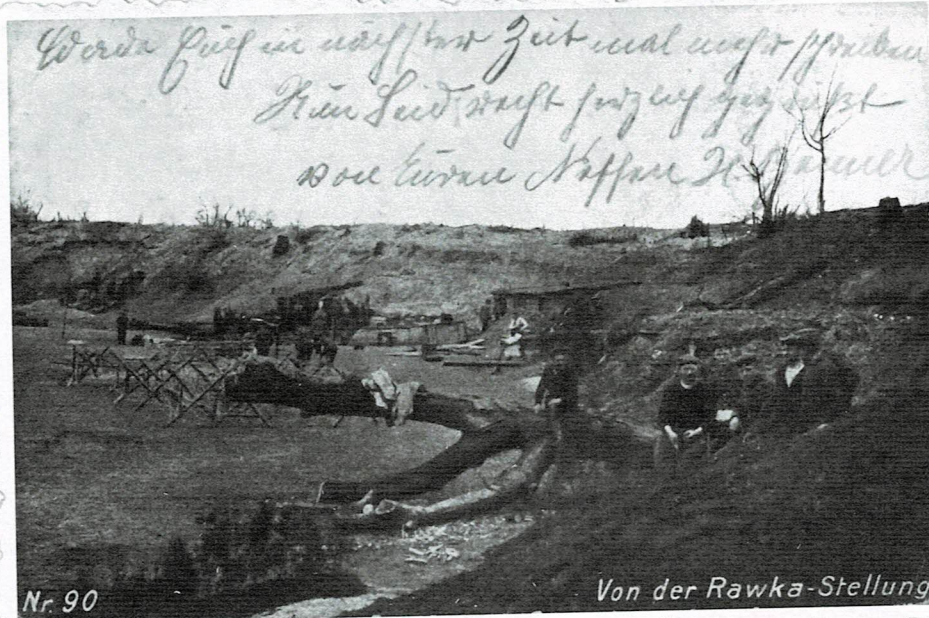 Werde Euch in nächster Zeit mal mehr schreiben
Nun Seid recht herzlich gegrüßt
von Euren Neffen
Nr. 90
Von der Rawka-Stellung